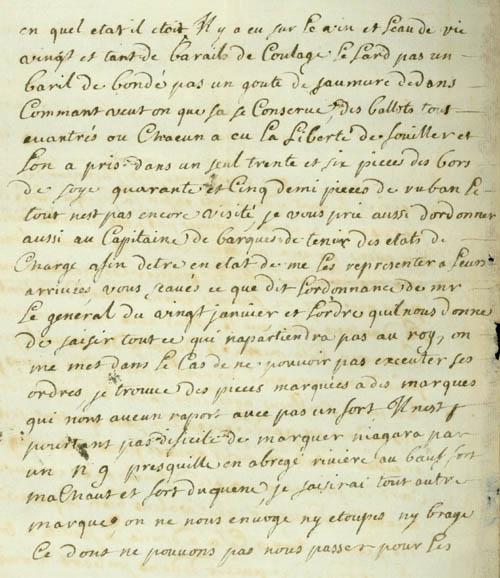 en quel etat il etoit Il y a eu sur le vin et leau de vie
vingt et tant de barails de Coulage Le Lard pas un
baril de bondé pas un goute de saumure dedans
Commant veut on que sa se Conserve, des ballots tous
evantrés ou Chacun a eu La Liberté de fouiller et
Lon a pris dans un seul trente et six pieces des bors
de soye quarante et Cinq demi pieces de ruban Le
tout nest pas encore visité, je vous prie aussi dordonner
aussi au Capitaine de barques de tenir des etats de
Charge afin detre en etat de me les representer a leurs
arrivées, vous savés ce que dit Lordonnance de mr
Le general du vingt janvier et Lordre quil nous donne
de saisir tout ce qui napartiendra pas au roy, on
me met dans le Cas de ne pouvoir pas executer ses
ordres, je trouve des pieces marquées a des marques
qui nont aucun raport avec pas un fort Il nest
pourtant pas dificile de marquer niagara par
un n g presquille en abregé riviere au bœuf fort
machaut et fort duquene, je saisirai tout autre
marque, on ne nous envoye ny etoupes ny brage
Ce dont ne pouvons pas nous passer pour les